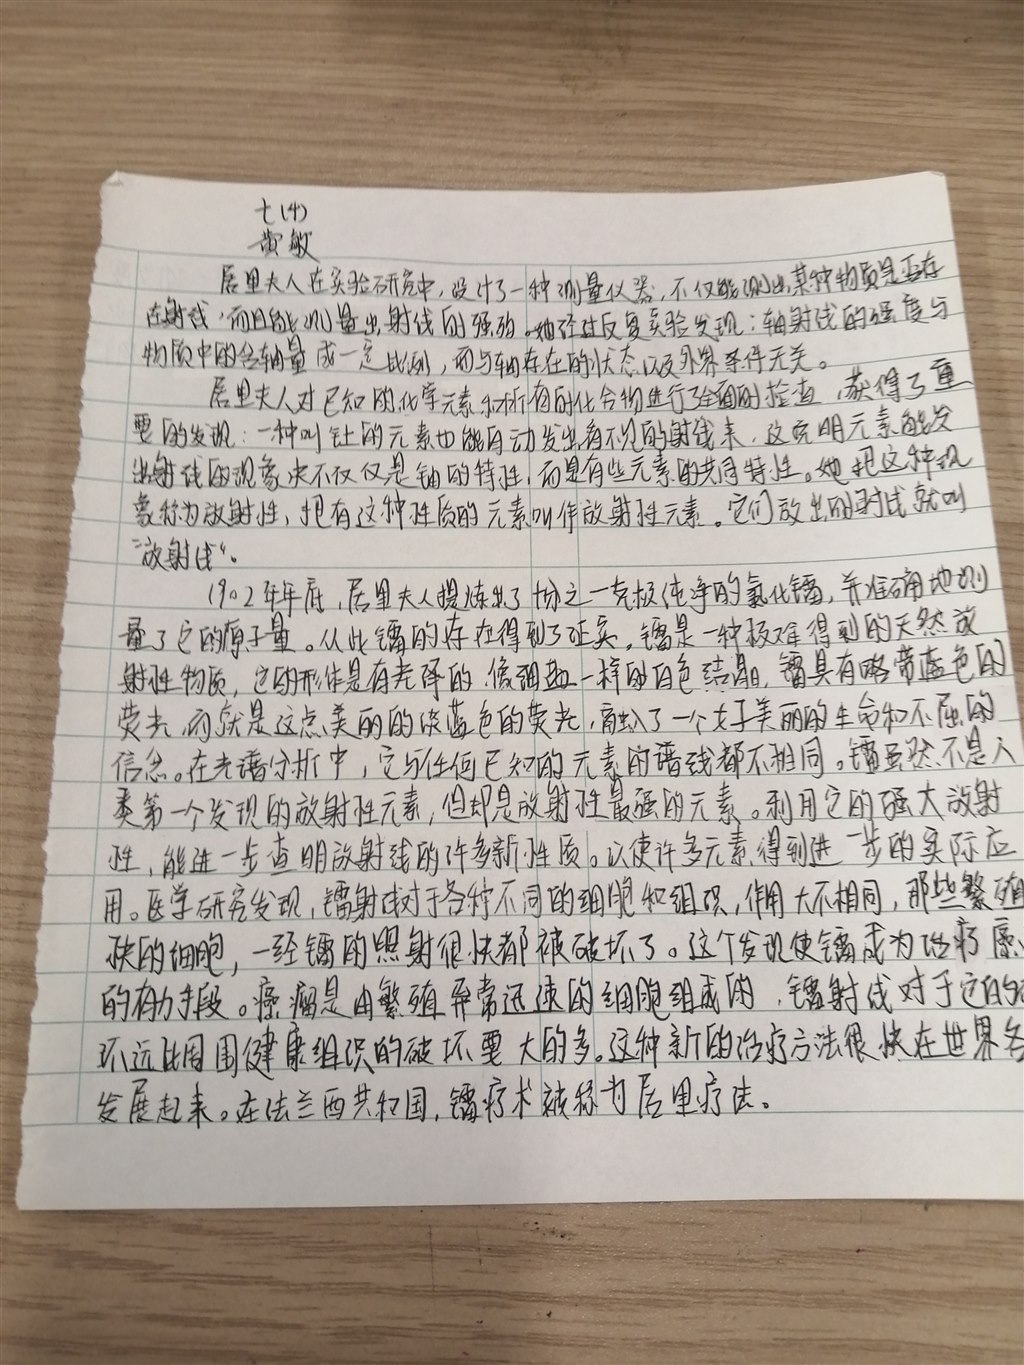 七(4)
黄敏
居里夫人在实验研究中，设计了一种测量仪器，不仅能测出某种物质是否存
在射线，而且能测量出射线的强弱。她经过反复实验发现：铀射线的强度与
物质中的含铀量成一定比例，而与铀存在的状态以及外界条件无关。
居里夫人对已知的化学元素和所有的化合物进行了全面的检查，获得了重
要的发现：一种叫钍的元素也能自动发出看不见的射线来，这说明元素能发
出射线的现象决不仅仅是铀的特性，而是有些元素的共同特性。她把这种现
象称为放射性，把有这种性质的元素叫作放射性元素。它们放出的射线就叫
“放射线”。
1902年年底，居里夫人提炼出了十分之一克极纯净的氯化镭，并准确地测
量了它的原子量。从此镭的存在得到了证实。镭是一种极难得到的天然放
射性物质，它的形体是有光泽的、像细盐一样的白色结晶，镭具有略带蓝色的
荧光，而就是这点美丽的淡蓝色的荧光，融入了一个女子美丽的生命和不屈的
信念。在光谱分析中，它与任何已知的元素的谱线都不相同。镭虽然不是人
类第一个发现的放射性元素，但却是放射性最强的元素。利用它的强大放射
性，能进一步查明放射线的许多新性质。以使许多元素得到进一步的实际应
用。医学研究发现，镭射线对于各种不同的细胞和组织，作用大不相同，那些繁殖
快的细胞，一经镭的照射很快都被破坏了。这个发现使镭成为治疗癌
的有力手段。癌瘤是由繁殖异常迅速的细胞组成的，镭射线对于它的破
坏远比周围健康组织的破坏要大的多。这种新的治疗方法很快在世界各
发展起来。在法兰西共和国，镭疗术被称为居里疗法。